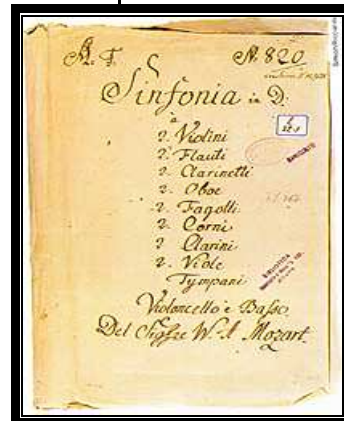 N. 820
Sinfonia in D.
a
2. Violini
2. Flauti
2. Clarinetti
2. Oboe
2. Fagotti
2. Corni
2 Clarini
2. Viole
Tympani
Violoncello e Basso.
Del Sigre W. A Mozart.